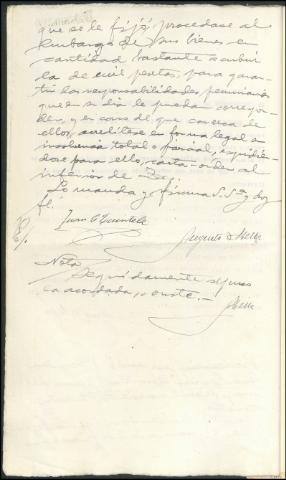 que se le fijó, procedase al
embargo de sus bienes en
cantidad bastante a cubrir
la de mil pesetas, para garan-
tir las responsabilidades pecuniarias
que en su dia le puedan correspon-
der, y en caso de que carezca de
ellos, acreditese en forma legal su
insolvencia total o parcial, expidien-
dose para ello, carta-orden al
inferior de
Lo manda y firma S.Sª y doy
fé.
Juan
Augusto
Nota
Seguidamente se cumple
lo acordado, conste.-